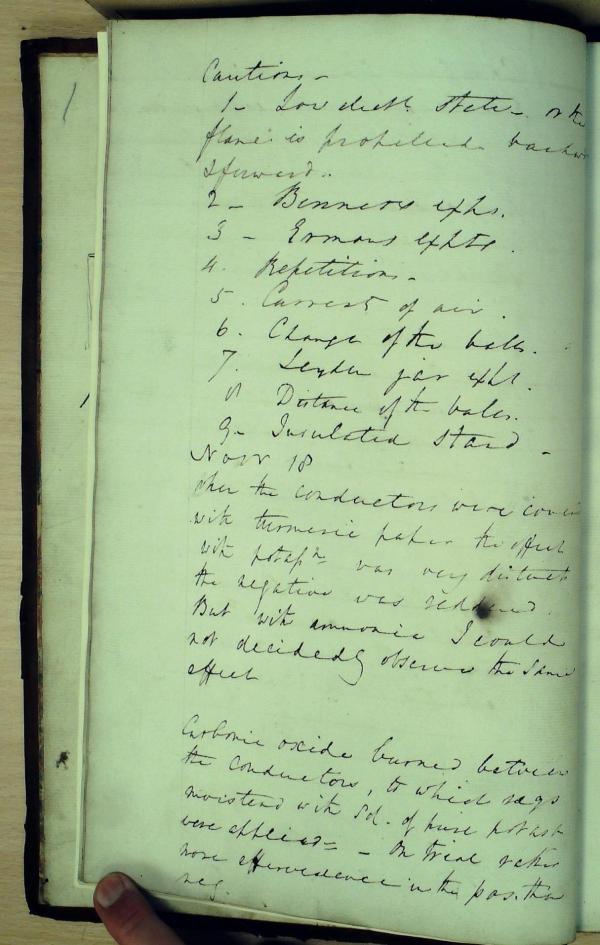 Cautions -
1 - Low electl. state - or the
flame is propelled backw
& forward.
2 - Bennets expts.
3 - Ermans expts.
4. Repetitions -
5. Current of air.
6. Change of the balls.
7. Leyden jar expt.
8 Distance of the balls.
9 - Insulated stand -
Novr 18
When the conductors were cover
with turmeric paper the effect
with potash was very distinct
the negative was reddened.
But with ammonia I could
not decidedly observe the same
effect
Carbonic oxide burned between
the conductors, to which rags
moistened with Sol. of pure potash
were applied - On trial rather
more effervescence in the pos. than
neg.